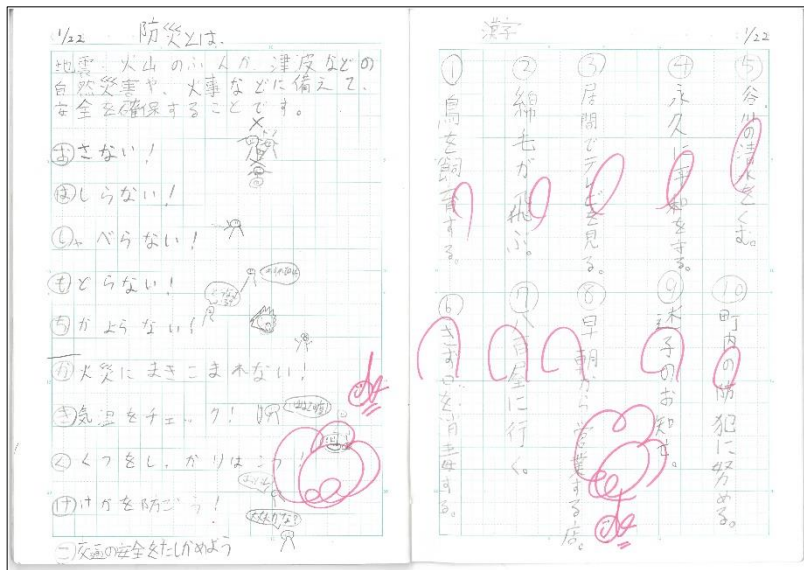 1/22 防災とは
地震、火山のふん火、津波などの
自然災害や、火事などに備えて、
安全を確保することです。
おさない!
はしらない!
しゃべらない!
もどらない!
ちかよらない!
か火災にまきこまれない!
き気温をチェック!
くくつをしっかりはこう!
けけがを防ごう!
こ交通の安全をたしかめよう
漢字 1/22
① 鳥を飼育する。
② 綿毛が飛ぶ。
③ 居間でテレビを見る。
④ 永久に平和をする。
⑤ 谷川の清水をくむ。
⑥ きず口を消毒する。
⑦ 八百屋に行く。
⑧ 早朝から営業する店。
⑨ 迷子のお知せ。
⑩ 町内の防犯に努める。